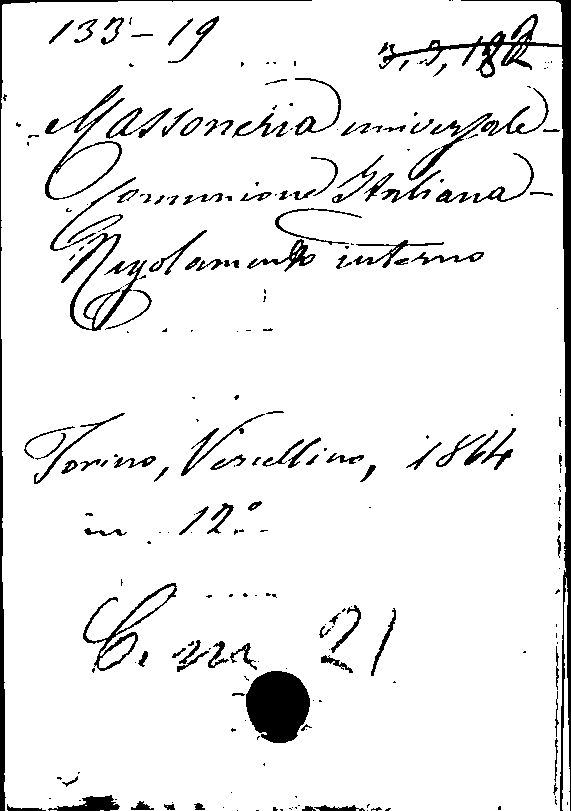 133-19 3,3,182
Massoneria universale -
Comunione Italiana -
Regolamento interno
Torino, Vercellino, 1864
in 12°
C. m 21